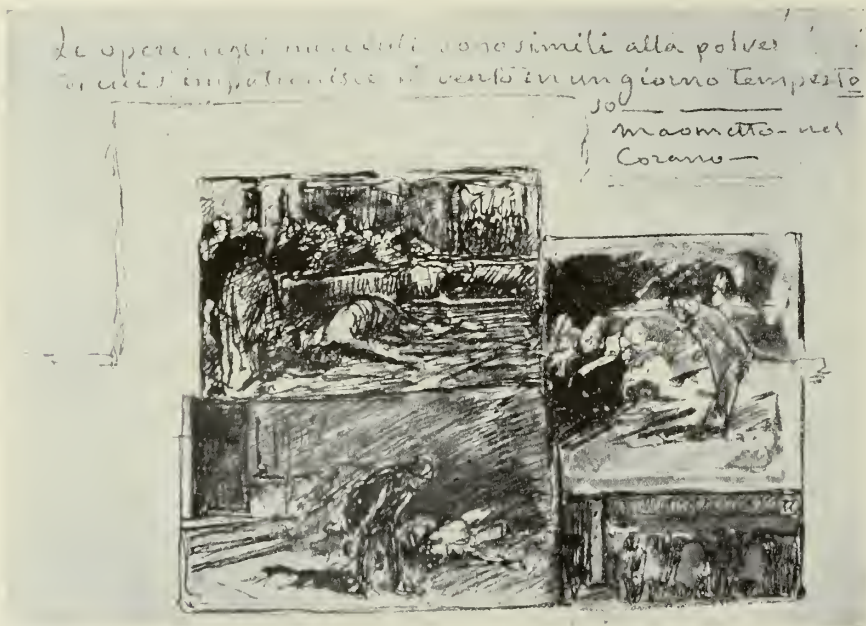 Le opere degli miscredenti sono simili alla polvere
di cui s'impadronisce il vento in un giorno tempesto
so
Maometto - nel
Corano -